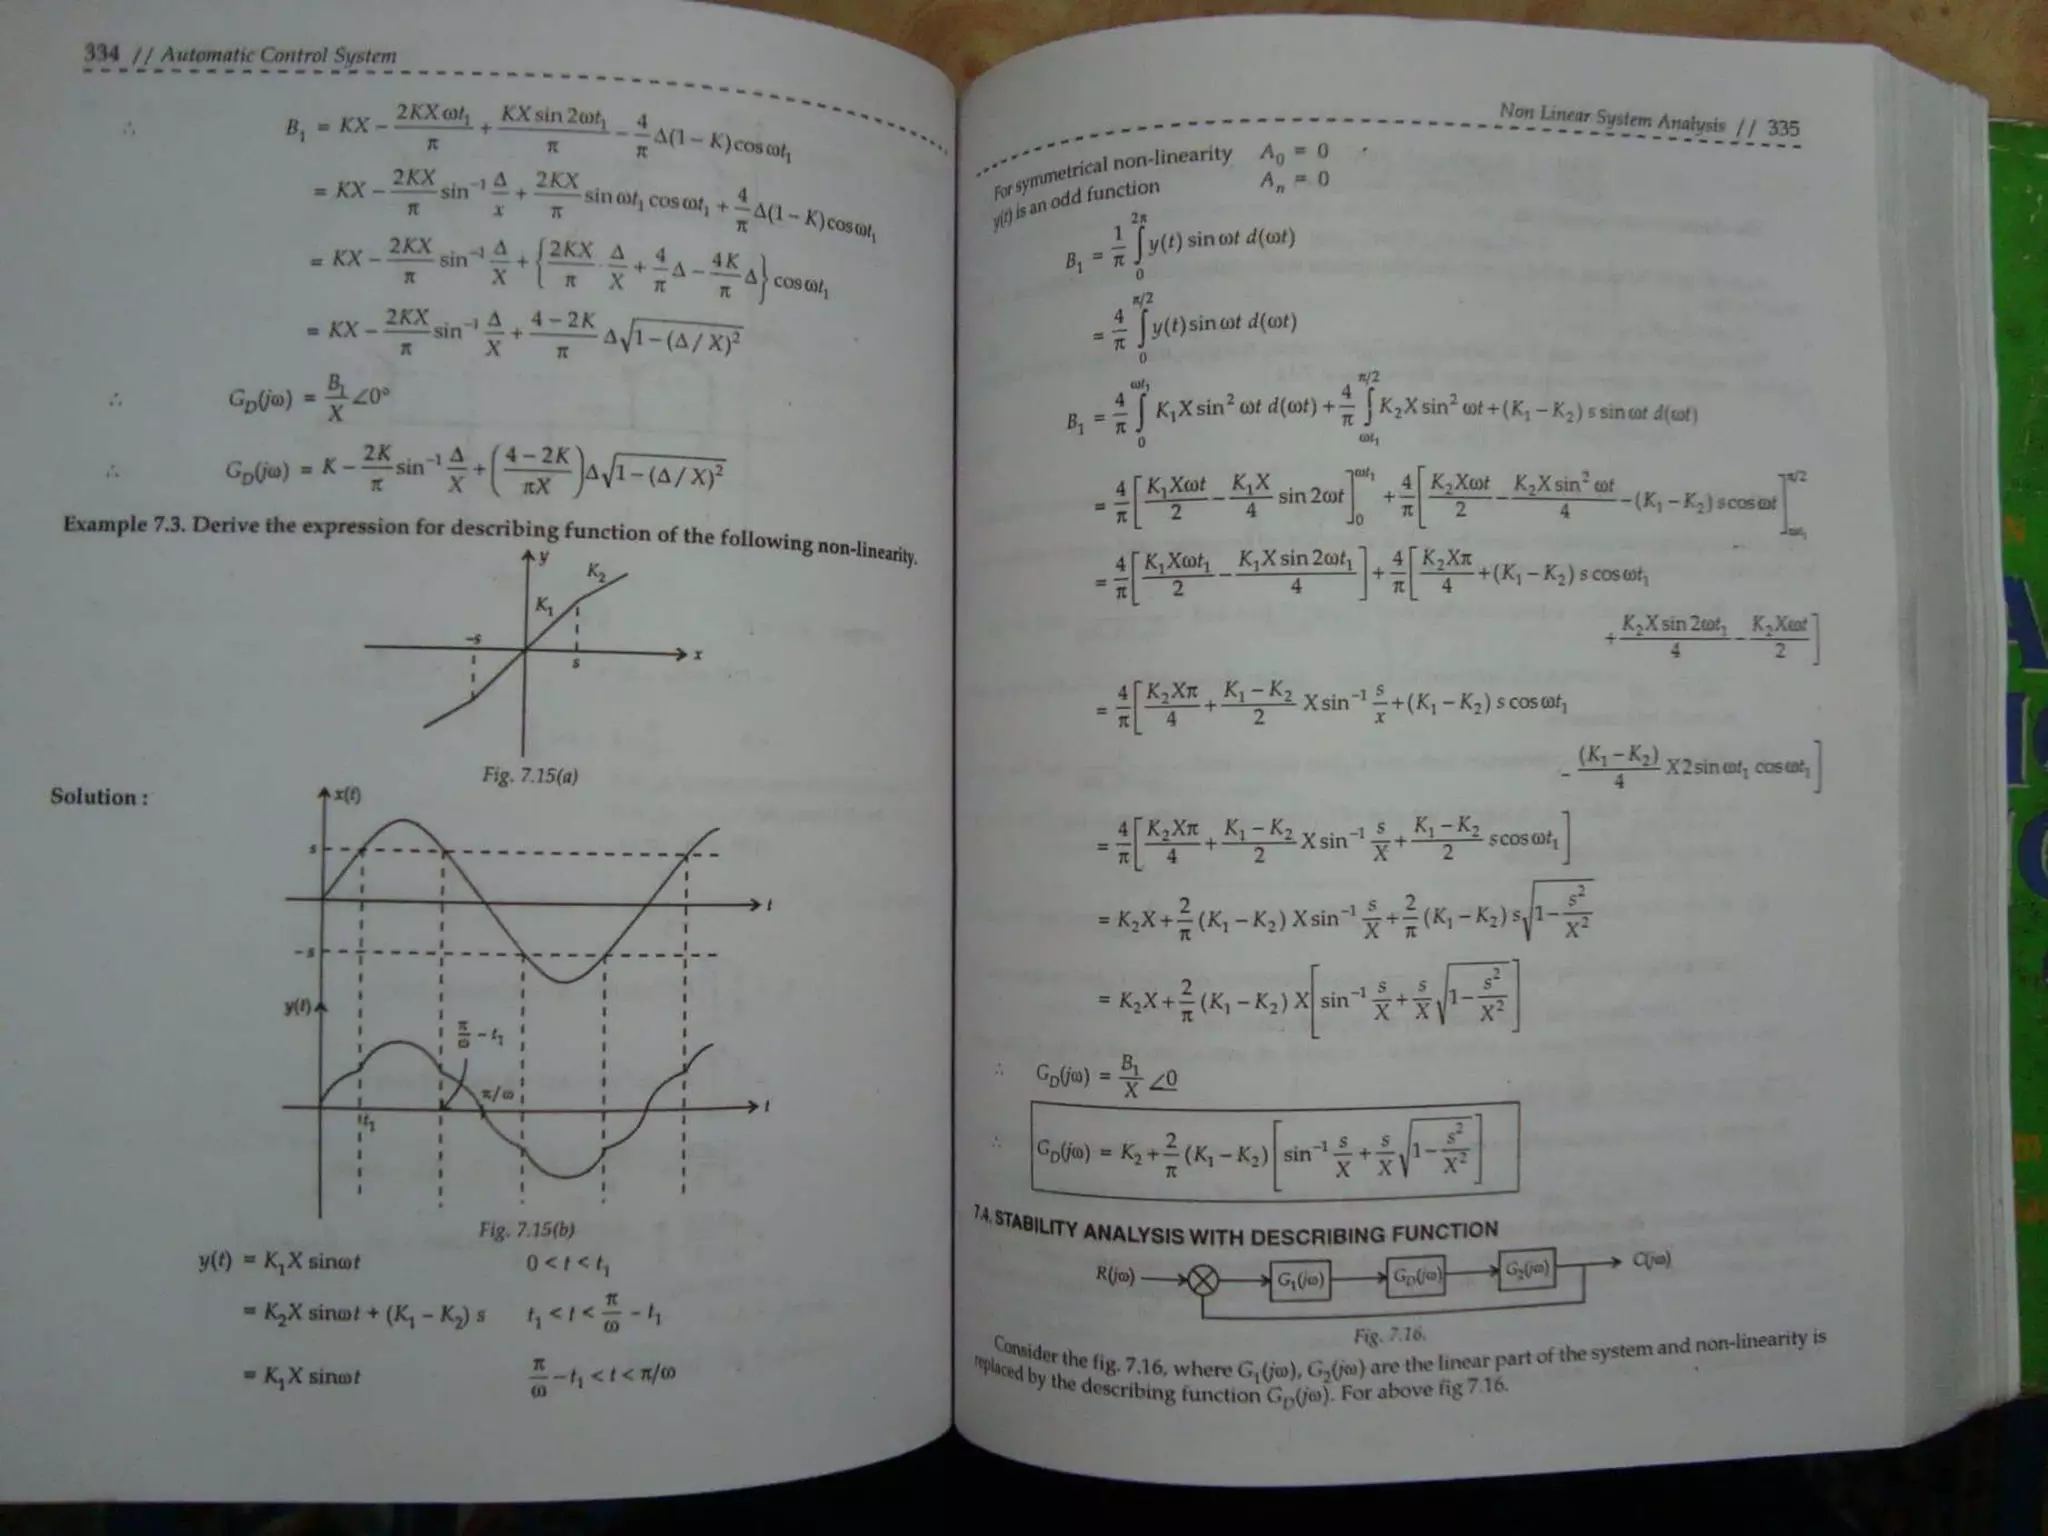 334 // Automatic Control System
∴ B₁ = KX − 2KXωt₁/π + KX sin 2ωt₁/π − 4/π Δ(1 − K) cos ωt₁
= KX − 2KX/π sin⁻¹ Δ/x + 2KX/π sin ωt₁ cos ωt₁ + 4/π Δ(1 − K) cos ωt₁
= KX − 2KX/π sin⁻¹ Δ/X + {2KX/π · Δ/X + 4/π Δ − 4K/π Δ} cos ωt₁
= KX − 2KX/π sin⁻¹ Δ/X + (4 − 2K)/π Δ√(1 − (Δ/X)²)
∴ G_D(jω) = B₁/X ∠0°
∴ G_D(jω) = K − 2K/π sin⁻¹ Δ/X + ((4 − 2K)/πX) Δ√(1 − (Δ/X)²)
Example 7.3. Derive the expression for describing function of the following non-linearity.
y
K₂
K₁
−s
s
x
Fig. 7.15(a)
Solution :
x(t)
s
t
−s
y(t)
π/ω − t₁
π/ω
t
t₁
Fig. 7.15(b)
y(t) = K₁X sinωt 0 < t < t₁
= K₂X sinωt + (K₁ − K₂) s t₁ < t < π/ω − t₁
= K₁X sinωt π/ω − t₁ < t < π/ω
Non Linear System Analysis // 335
For symmetrical non-linearity A₀ = 0
y(t) is an odd function Aₙ = 0
B₁ = 1/π ∫₀^2π y(t) sin ωt d(ωt)
= 4/π ∫₀^π/2 y(t) sin ωt d(ωt)
B₁ = 4/π ∫₀^ωt₁ K₁X sin² ωt d(ωt) + 4/π ∫_ωt₁^π/2 K₂X sin² ωt + (K₁ − K₂) s sin ωt d(ωt)
= 4/π [K₁Xωt/2 − K₁X/4 sin 2ωt]₀^ωt₁ + 4/π [K₂Xωt/2 − K₂X sin² ωt/4 − (K₁ − K₂) s cos ωt]_ωt₁^π/2
= 4/π [K₁Xωt₁/2 − K₁X sin 2ωt₁/4] + 4/π [K₂Xπ/4 + (K₁ − K₂) s cos ωt₁
+ K₂X sin 2ωt₁/4 − K₂Xωt/2]
= 4/π [K₂Xπ/4 + (K₁ − K₂)/2 X sin⁻¹ s/x + (K₁ − K₂) s cos ωt₁
− (K₁ − K₂)/4 X2 sin ωt₁ cos ωt₁]
= 4/π [K₂Xπ/4 + (K₁ − K₂)/2 X sin⁻¹ s/X + (K₁ − K₂)/2 s cos ωt₁]
= K₂X + 2/π (K₁ − K₂) X sin⁻¹ s/X + 2/π (K₁ − K₂) s√(1 − s²/X²)
= K₂X + 2/π (K₁ − K₂) X[sin⁻¹ s/X + s/X √(1 − s²/X²)]
∴ G_D(jω) = B₁/X ∠0
∴ G_D(jω) = K₂ + 2/π (K₁ − K₂)[sin⁻¹ s/X + s/X √(1 − s²/X²)]
7.4. STABILITY ANALYSIS WITH DESCRIBING FUNCTION
R(jω) G₁(jω) G_D(jω) G₂(jω) C(jω)
Fig. 7.16.
Consider the fig. 7.16, where G₁(jω), G₂(jω) are the linear part of the system and non-linearity is
replaced by the describing function G_D(jω). For above fig 7.16.